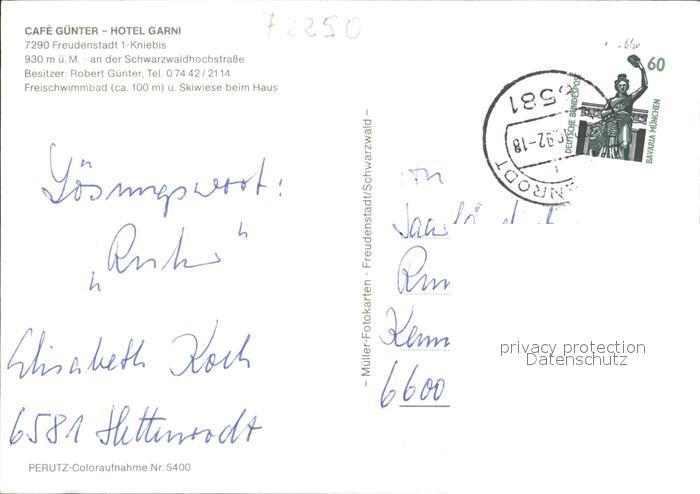 72250
CAFÉ GÜNTER – HOTEL GARNI
7290 Freudenstadt 1-Kniebis
930 m ü. M. · an der Schwarzwaldhochstraße
Besitzer: Robert Günter, Tel. 0 74 42 / 2114
Freischwimmbad (ca. 100 m) u. Skiwiese beim Haus
Lösungswort:
„Ruhe"
Elisabeth Koch
6581 Hettenrodt
PERUTZ-Coloraufnahme Nr. 5400
– Müller-Fotokarten · Freudenstadt/Schwarzwald –
60
DEUTSCHE BUNDESPOST
BAVARIA MÜNCHEN
6581
.92-18
NRODT
An
Run
Kenn
6600
privacy protection
Datenschutz